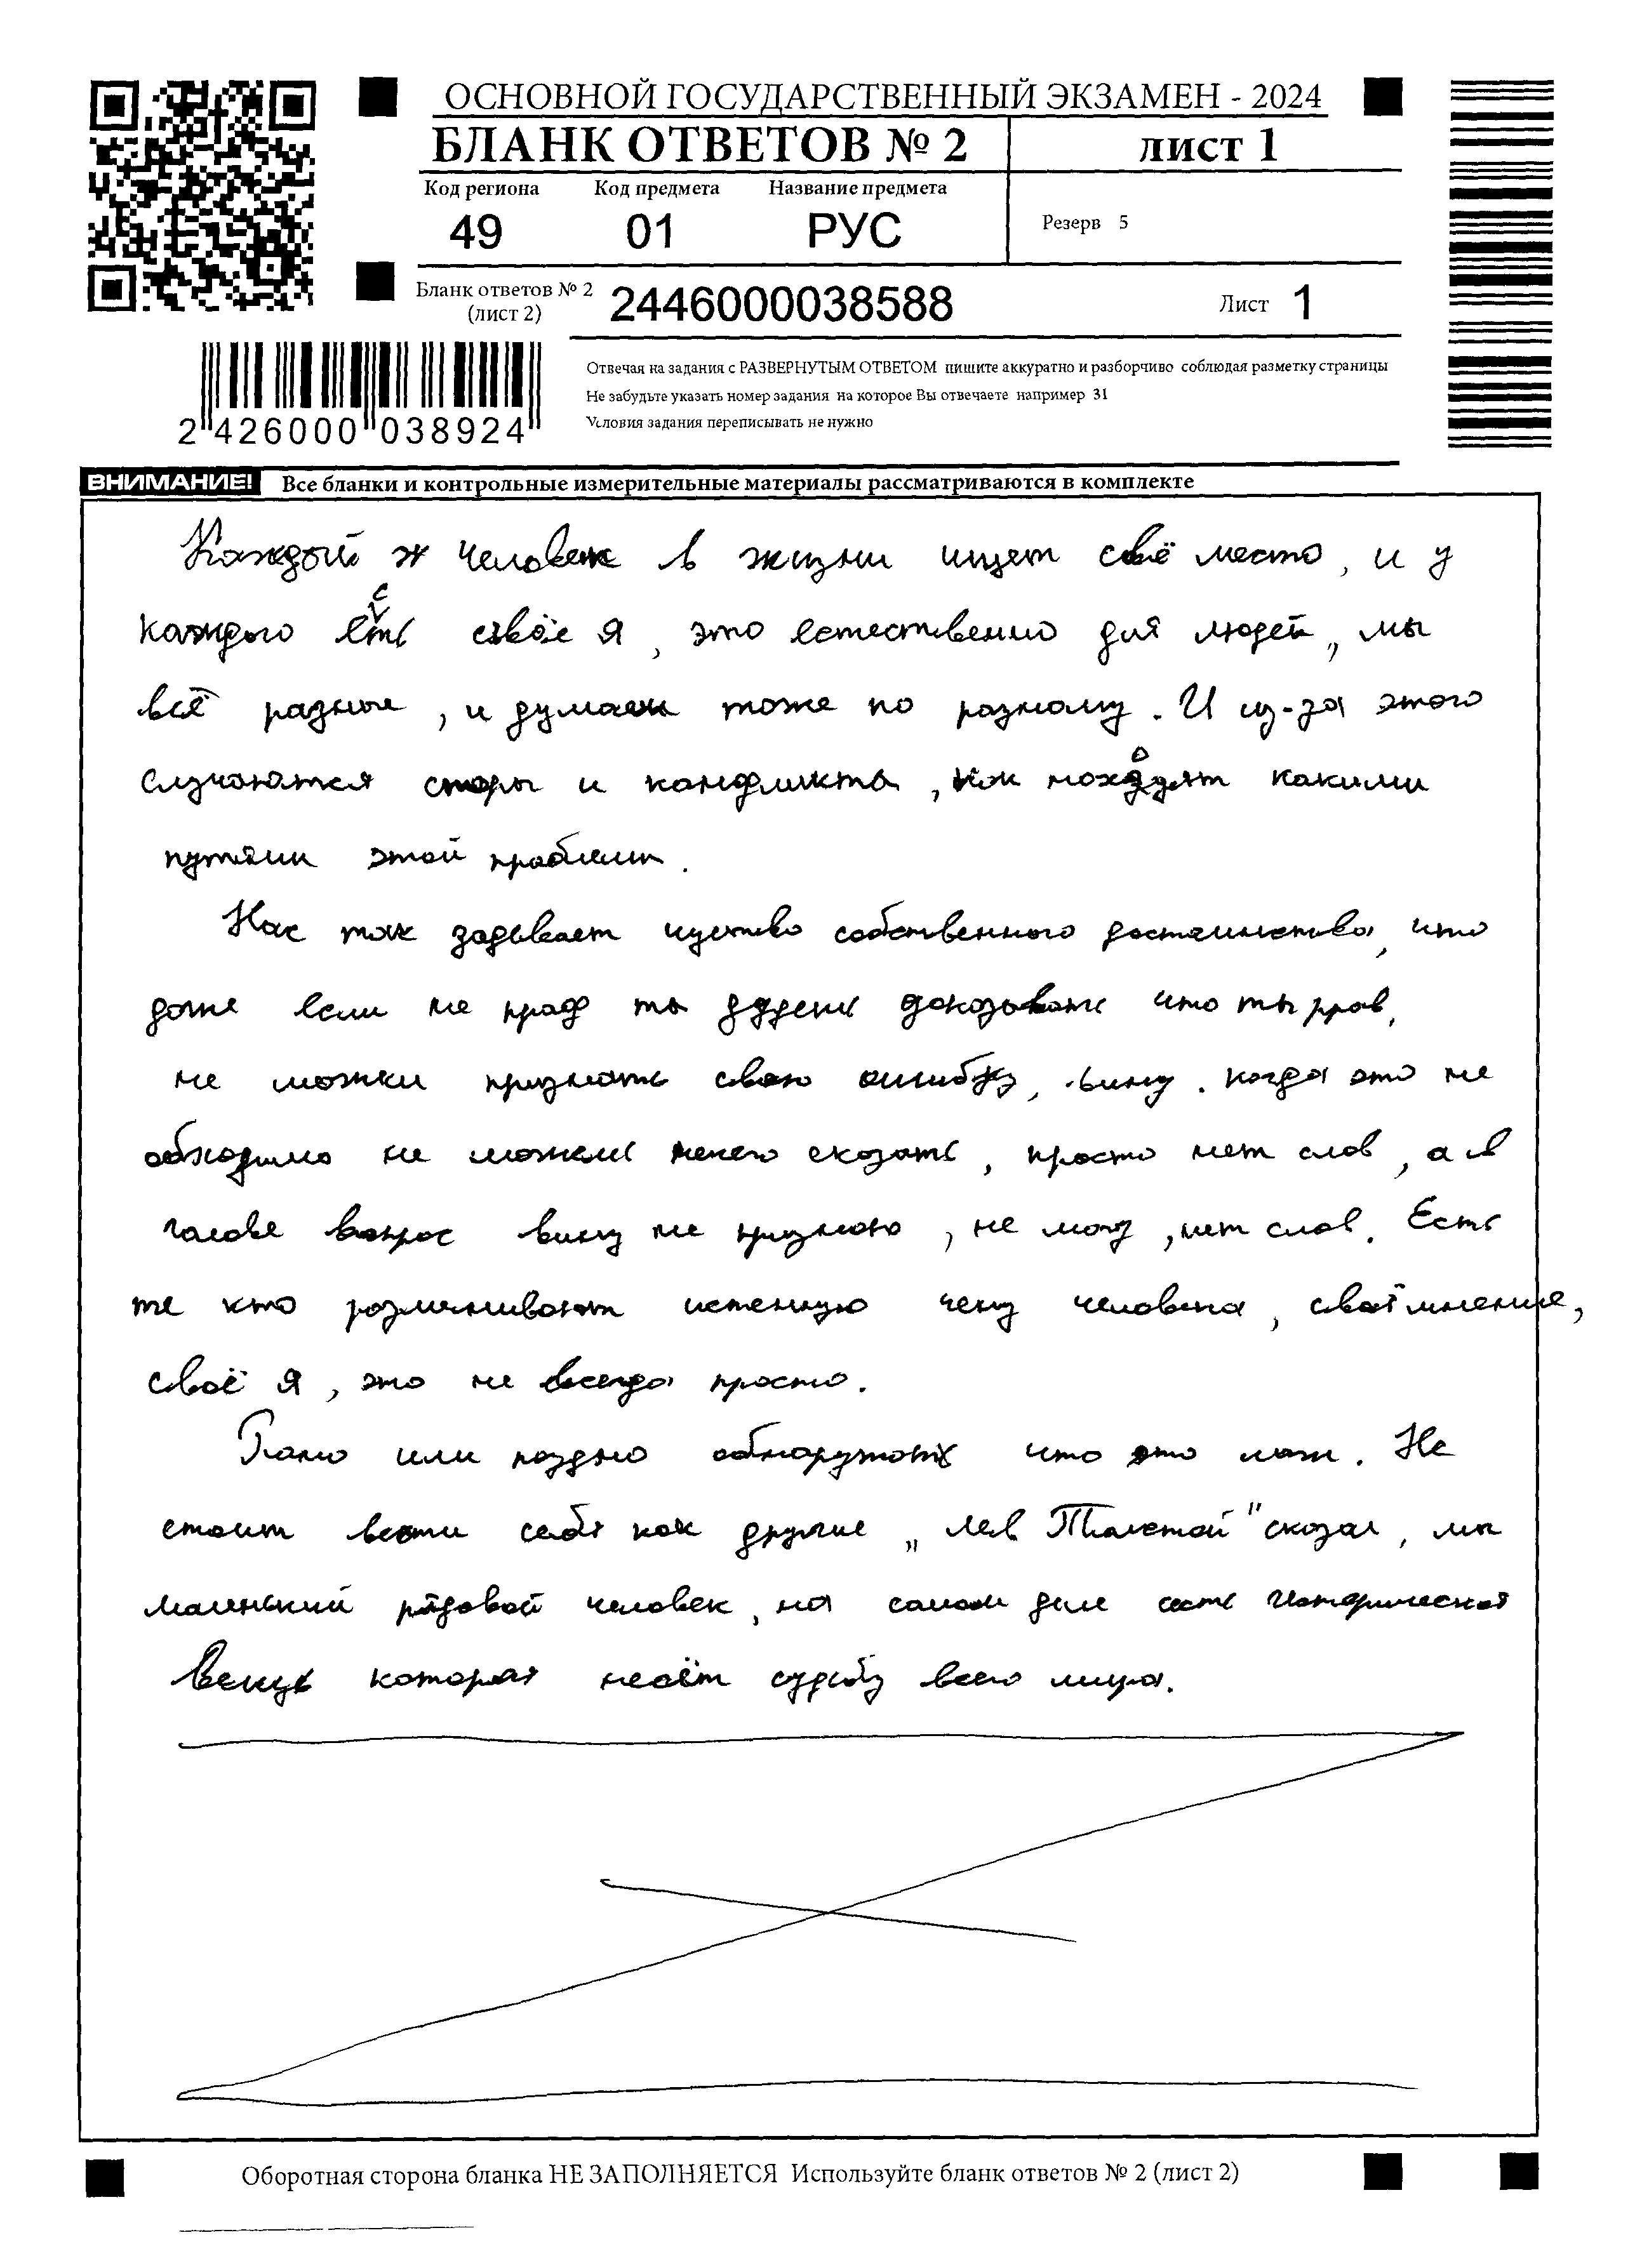 ОСНОВНОЙ ГОСУДАРСТВЕННЫЙ ЭКЗАМЕН - 2024
БЛАНК ОТВЕТОВ № 2 лист 1
Код региона Код предмета Название предмета
49 01 РУС Резерв 5
Бланк ответов № 2 (лист 2) 2446000038588 Лист 1
Отвечая на задания с РАЗВЕРНУТЫМ ОТВЕТОМ пишите аккуратно и разборчиво соблюдая разметку страницы
Не забудьте указать номер задания на которое Вы отвечаете например 31
Условия задания переписывать не нужно
2 426000 038924
ВНИМАНИЕ! Все бланки и контрольные измерительные материалы рассматриваются в комплекте
Каждый человек в жизни ищет своё место, и у
каждого есть своё я, это естественно для людей, мы
всё разные, и думаем тоже по разному. И из-за этого
случаются споры и канфликты, как какими
путями этой проблемы.
Нас так задевает цуство собственного достаинства, что
даже если не прав ты будешь доказывать что ты прав,
не можеш признать сваю ошибку, вину. когда это не
обходимо не можешь нечего сказать, просто нет слов, а в
галове вопрос вину не признаю, не могу, нет слов. Есть
те кто розменивают истенную чену человека, своё мнение,
своё я, это не всегда просто.
Рано или поздно обнаружать что это лож. Не
стоит вести себя как другие „Лев Талстой" сказал, мы
маленький рядовой человек, на самом деле есть
которая несёт судьбу всего мира.
Оборотная сторона бланка НЕ ЗАПОЛНЯЕТСЯ Используйте бланк ответов № 2 (лист 2)